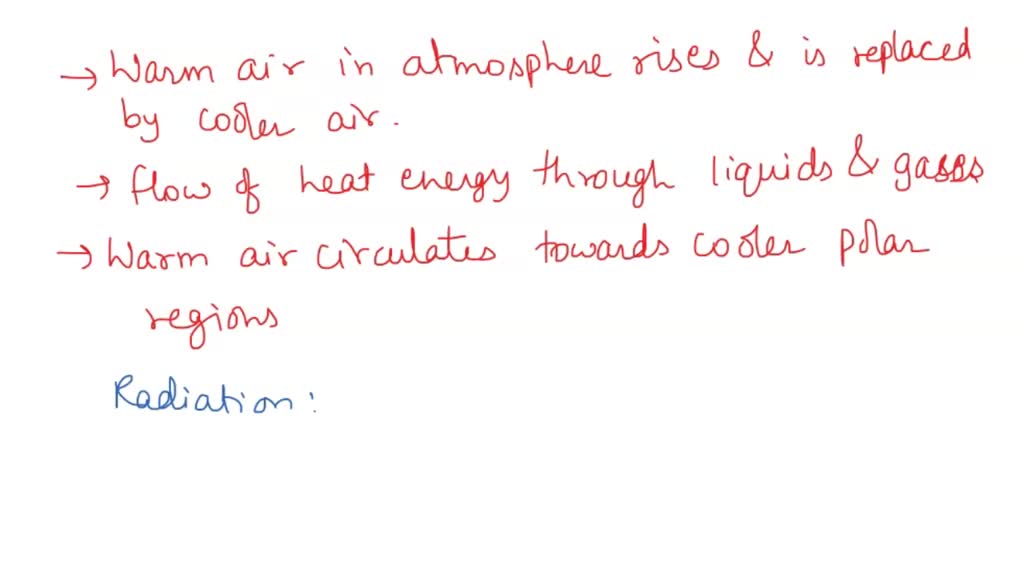 → Warm air in atmosphere rises & is replaced
by cooler air.
→ flow of heat energy through liquids & gases
→ Warm air circulates towards cooler polar
regions
Radiation: